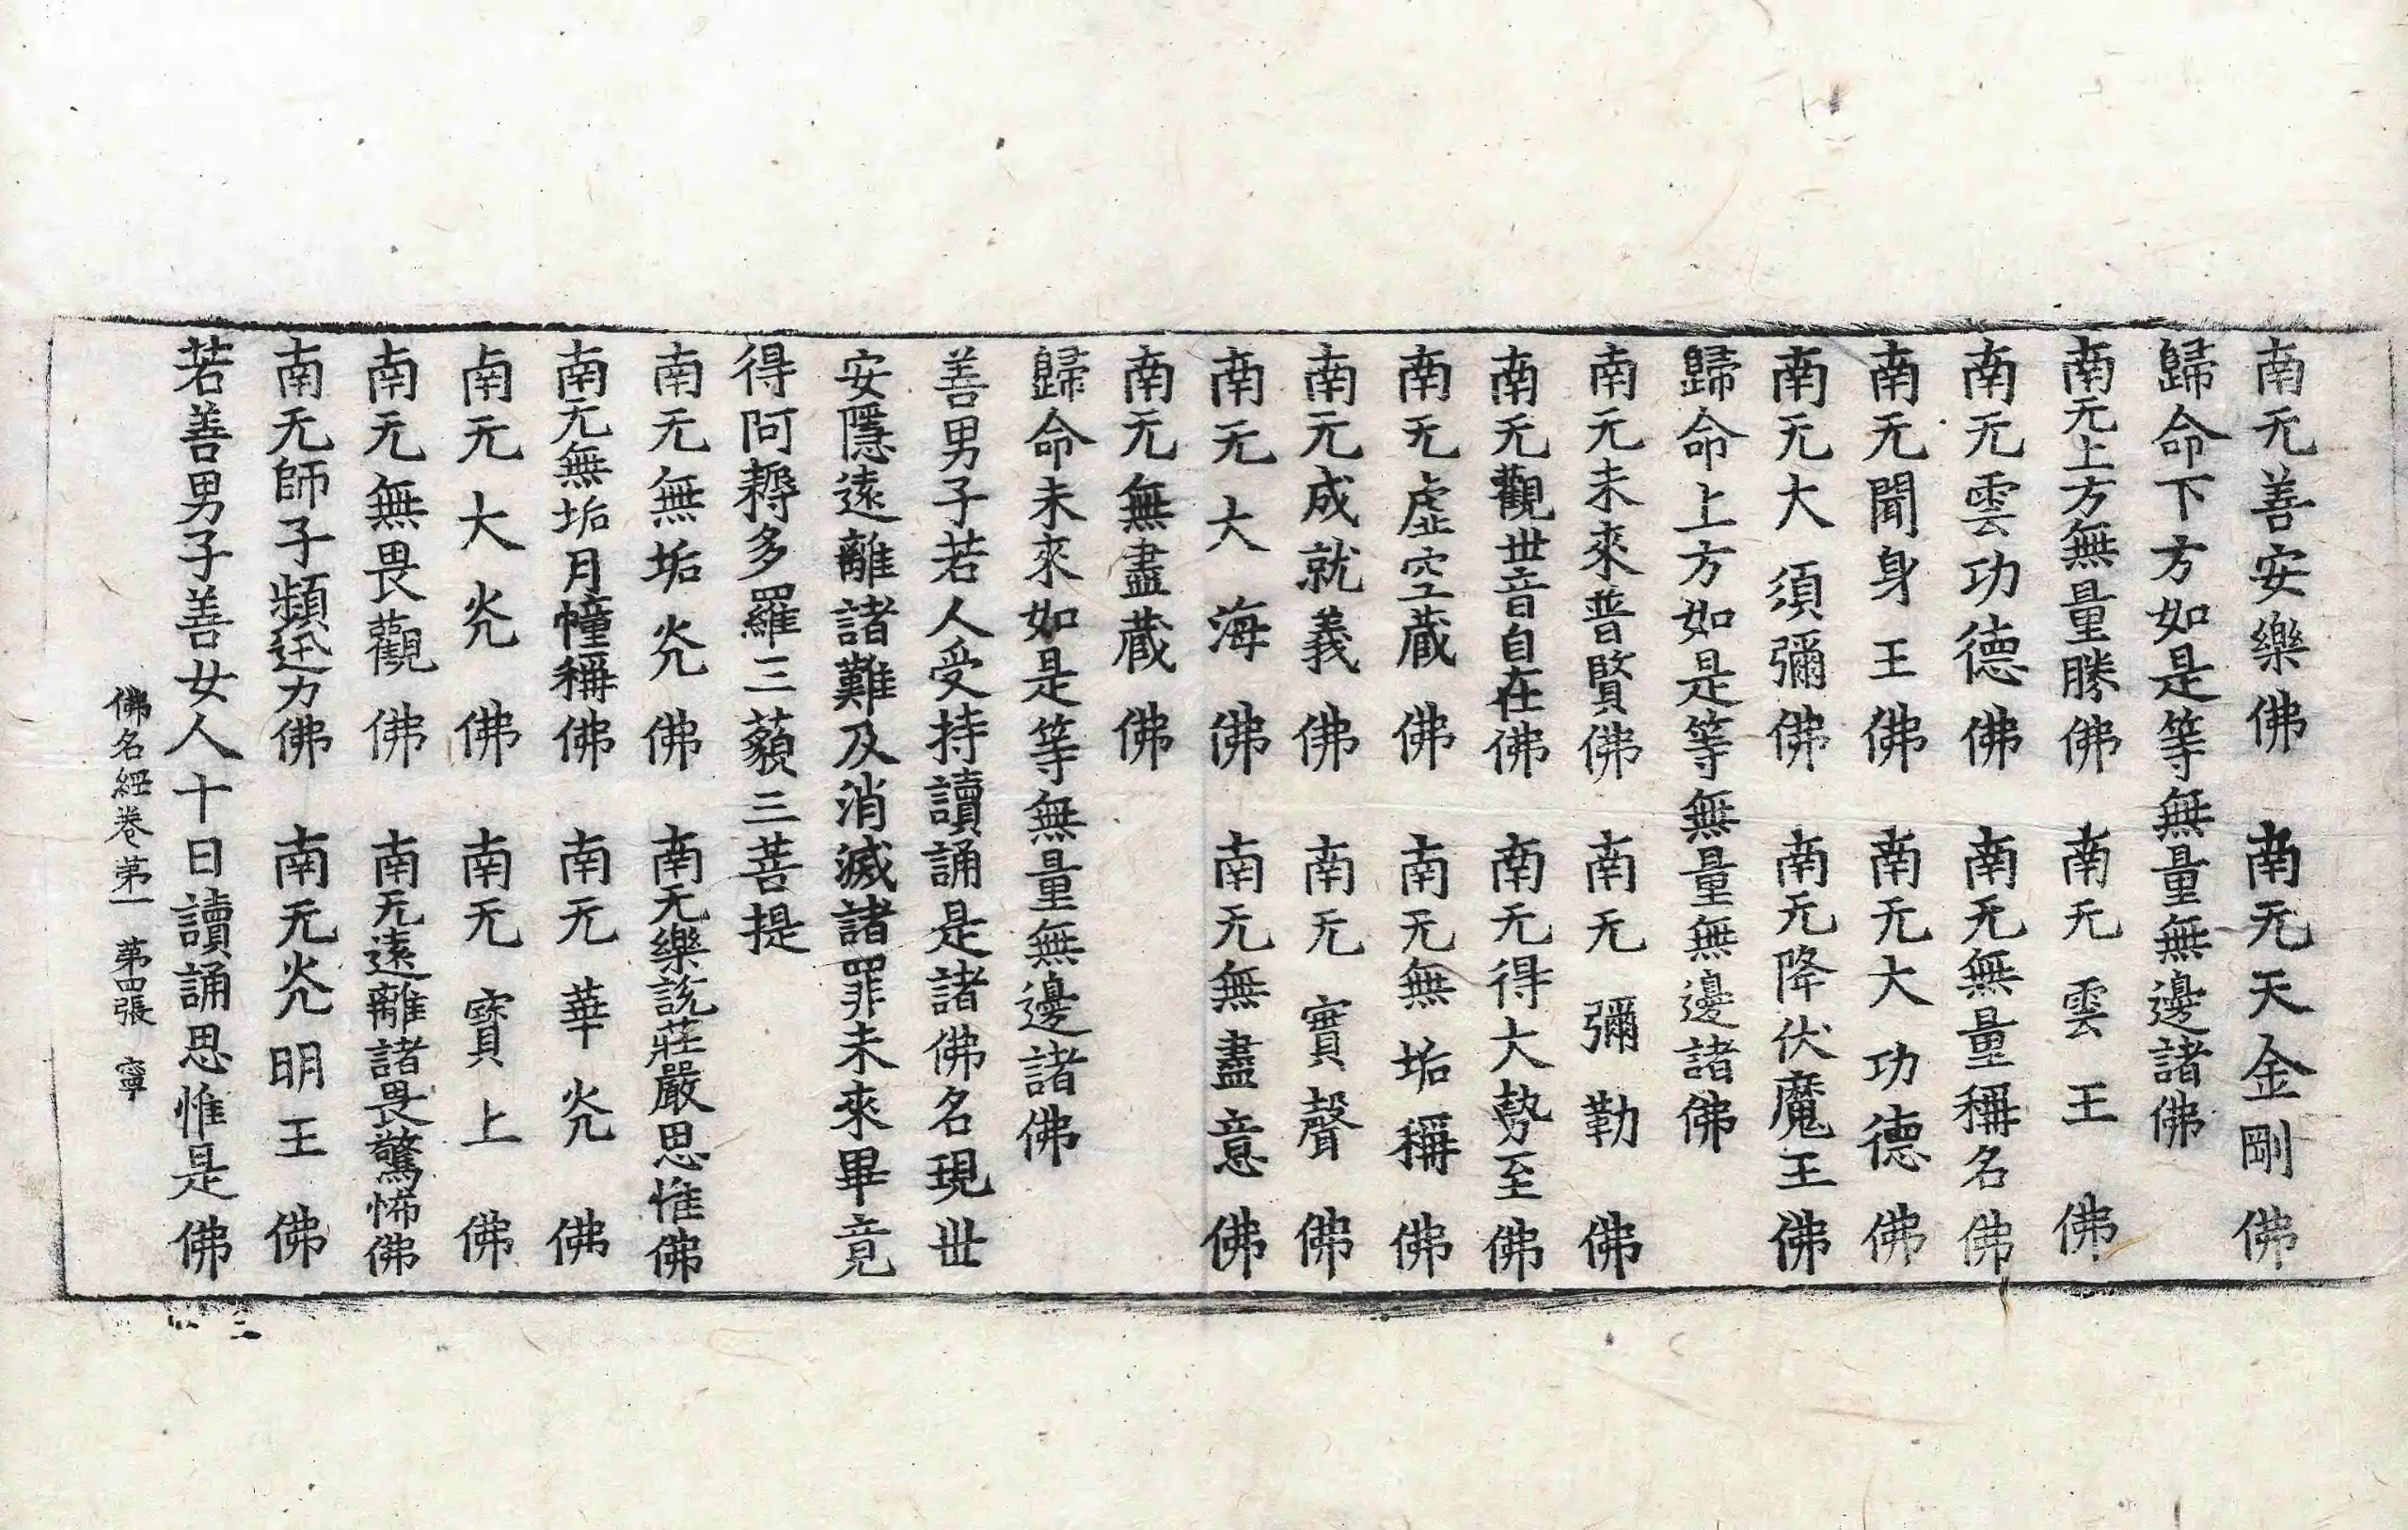 南无善安樂佛　南无天金剛佛
歸命下方如是等無量無邊諸佛
南无上方無量勝佛　南无雲王佛
南无雲功德佛　南无無量稱名佛
南无聞身王佛　南无大功德佛
南无大須彌佛　南无降伏魔王佛
歸命上方如是等無量無邊諸佛
南无未來普賢佛　南无彌勒佛
南无觀世音自在佛　南无得大勢至佛
南无虛空藏佛　南无無垢稱佛
南无成就義佛　南无寶聲佛
南无大海佛　南无無盡意佛
南无無盡藏佛
歸命未來如是等無量無邊諸佛
善男子若人受持讀誦是諸佛名現世
安隱遠離諸難及消滅諸罪未來畢竟
得阿耨多羅三藐三菩提
南无無垢光佛　南无樂說莊嚴思惟佛
南无無垢月幢稱佛　南无華光佛
南无大光佛　南无寶上佛
南无無畏觀佛　南无遠離諸畏驚怖佛
南无師子頻迅力佛　南无光明王佛
若善男子善女人十日讀誦思惟是佛
佛名經卷第一　第四張　寧